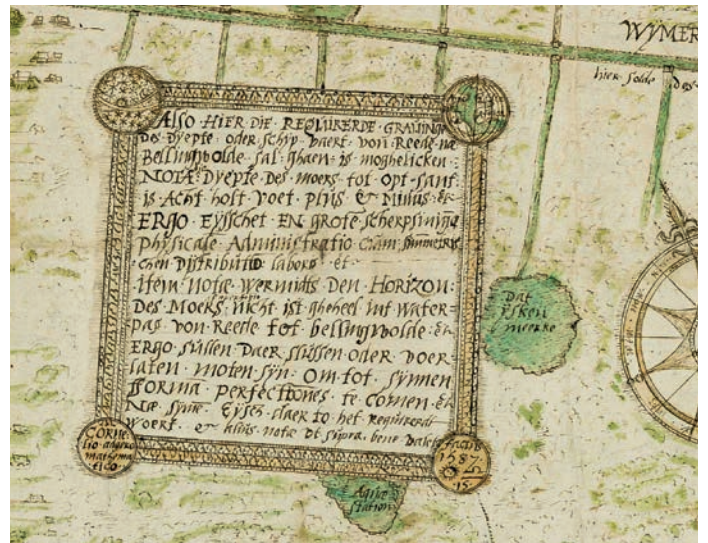 WYMER
hier solde des
Also HIER DIE REQUIRERDE GRAVINGE
Des Dyepte oder schip vaert von Reede na
Bellingwolde sal ghaen is moghelicken
NOTÆ Dyepte Des moers tot opt sant
is Acht holt voet plus & Minus &
ERGO Eysschet EN grote scherpsinige
physicale Administratio cham simmetris
chen Distributio labore et
item notæ wermidts Den Horizon
Des Moers nicht ist gheheel int water
pas von Reede tot bellingwolde &
ERGO sullen Daer slussen oder Doer
laten moten syn Om tot synnen
fforma perfectiones te comen &
Næ syne Eysch daer to het Requirerdt
woert & huius notæ Dt supra bene
Dat
ysken
meerke
CORNE
lio
mathema
tico
1587
Aquæ
station